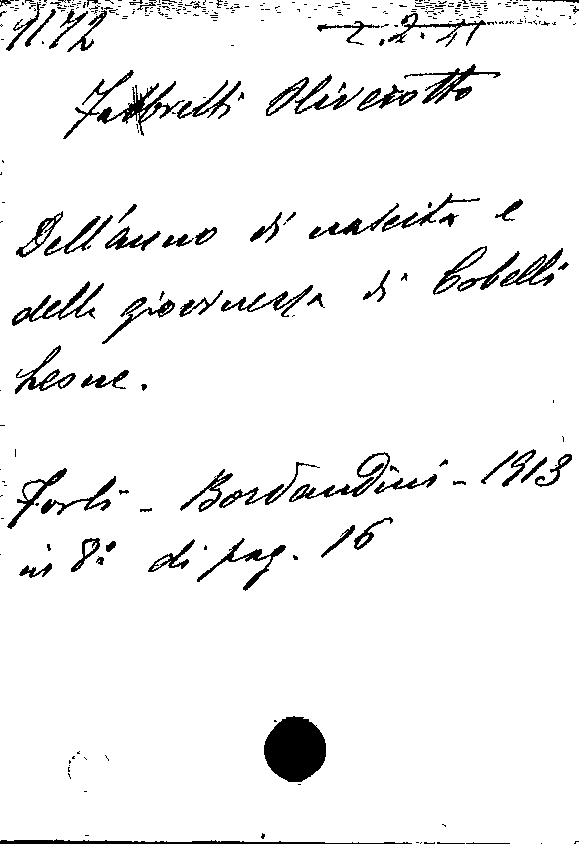 91.72 2.2.41
Fabbretti Oliverotto
Dell'anno di nascita e
della giovinezza di Cobelli
Leone.
Forlì - Bordandini - 1913
in 8° di pag. 16